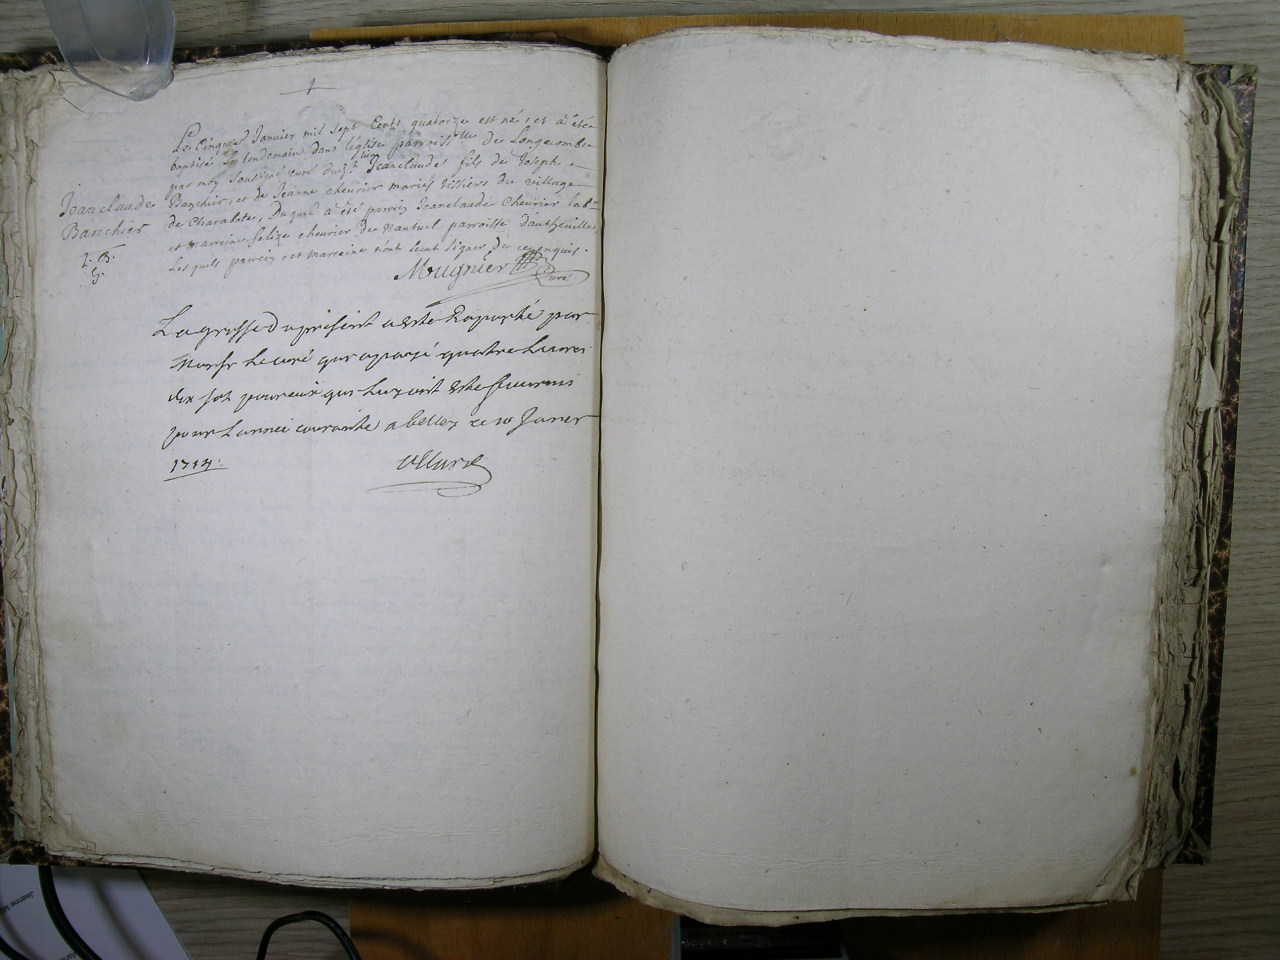 Le Cinquie Janvier mil Sept Cents quatorze est né, et à été
baptisé le lendemain dans l'églize parroissile de Longecombe
par moy soubsigé curé dud lieu Jeanclaude fils de Joseph
Banchier, et de Jeanne chevrier mariés du village
de Charabote, Duquel à été parrin Jeanclaude Chevrier lab
et marreine felize chevrier de Nantuel parroisse d'
Lesquels parrein, et marreine n'ont sceut signer de ce enquis.
Jeanclaude
Banchier
Mougnier Curé
La grosse du présent a esté Raporté par
Monsr le curé qui a payé quatre Livres
dix sol pour ceux qui luy ont esté fournis
pour L'année courante a belley ce 10 Janer
1714.